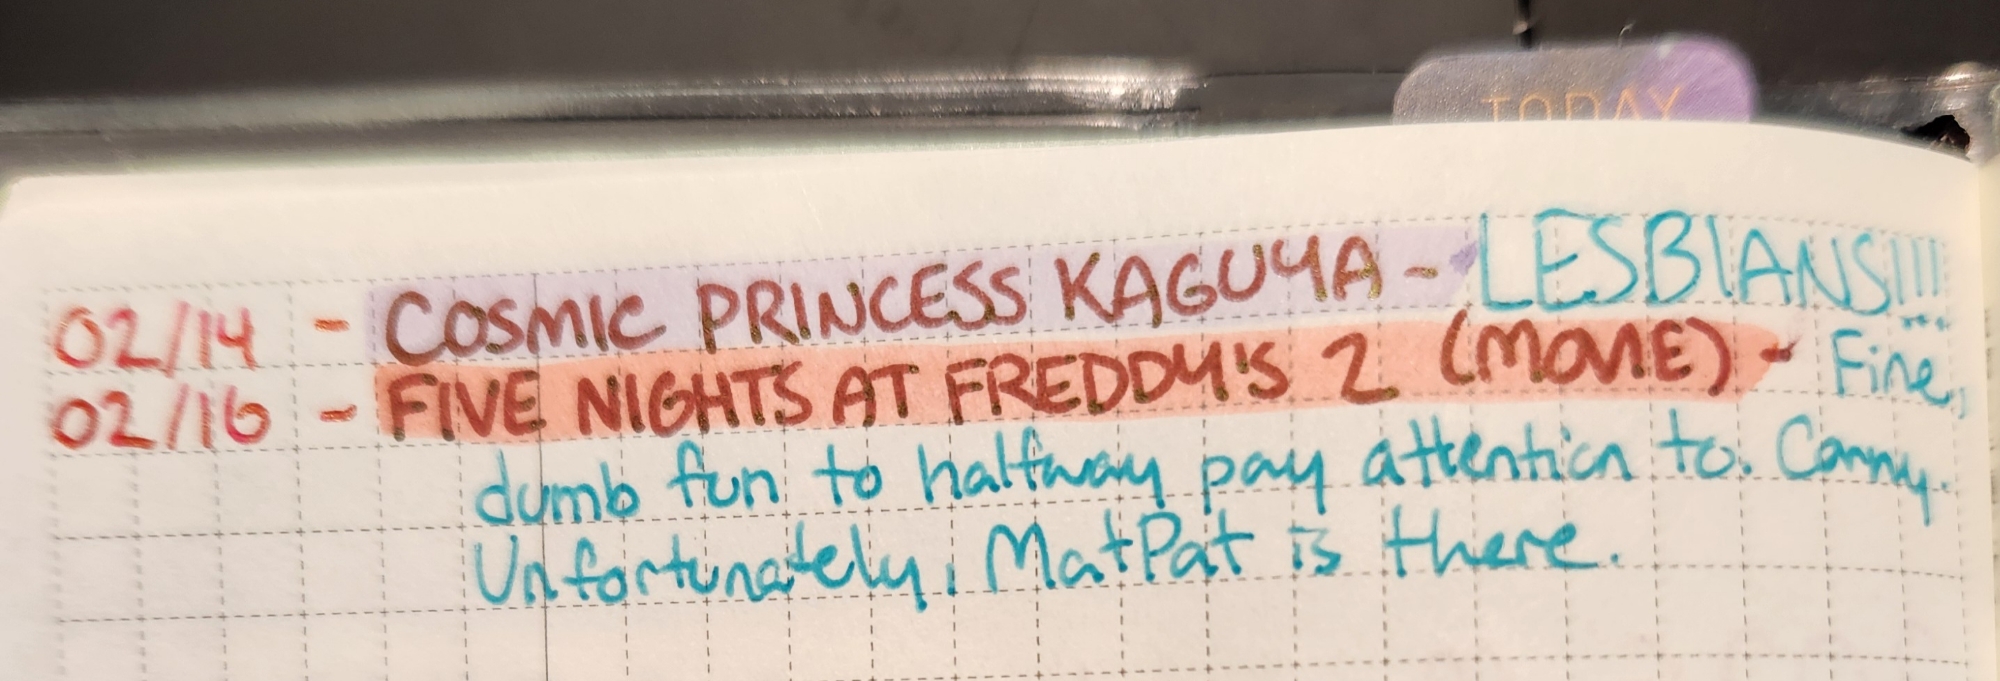 TODAY
02/14 - COSMIC PRINCESS KAGUYA - LESBIANS!!!
02/16 - FIVE NIGHTS AT FREDDY'S 2 (MOVIE) - Fine,
dumb fun to halfway pay attention to. Canny.
Unfortunately, MatPat is there.